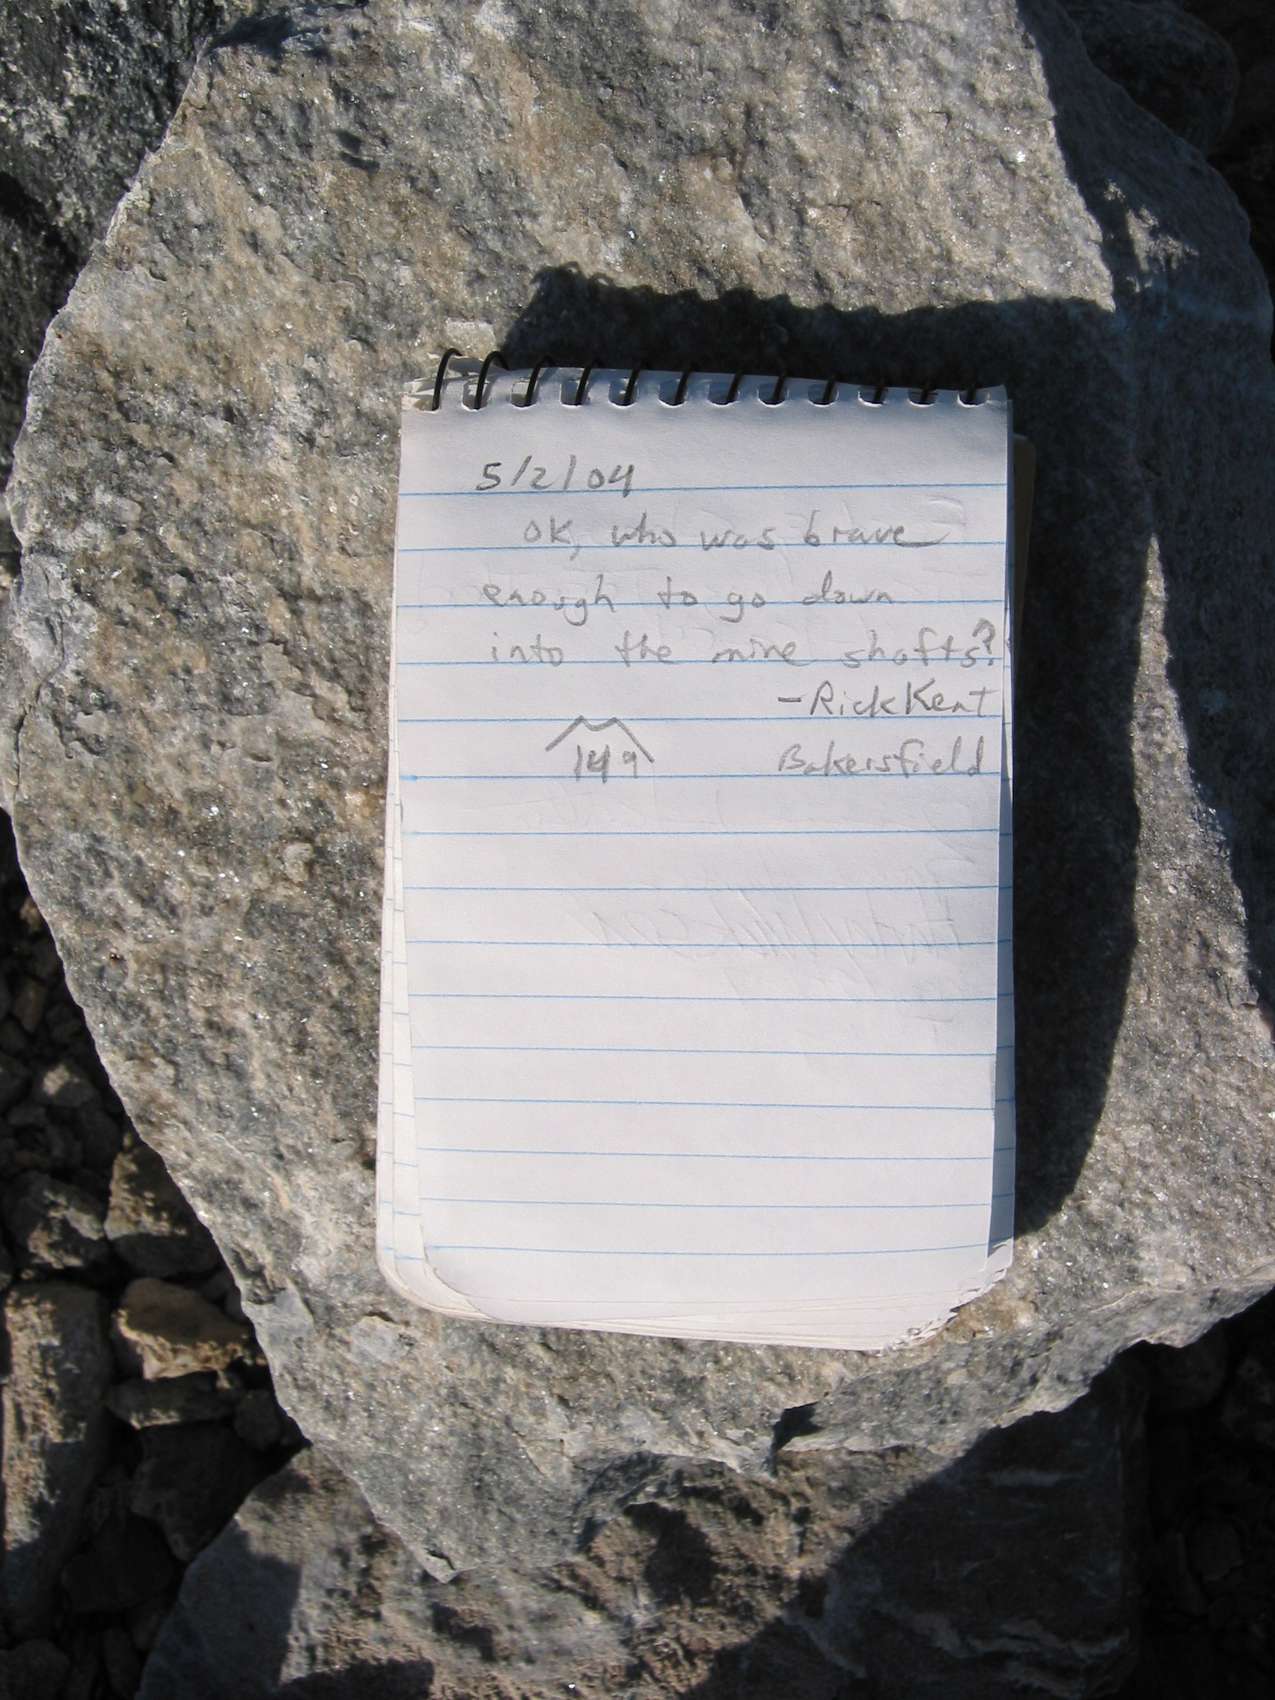 5/2/04
OK, who was brave
enough to go down
into the mine shafts?
-Rick Kent
149 Bakersfield